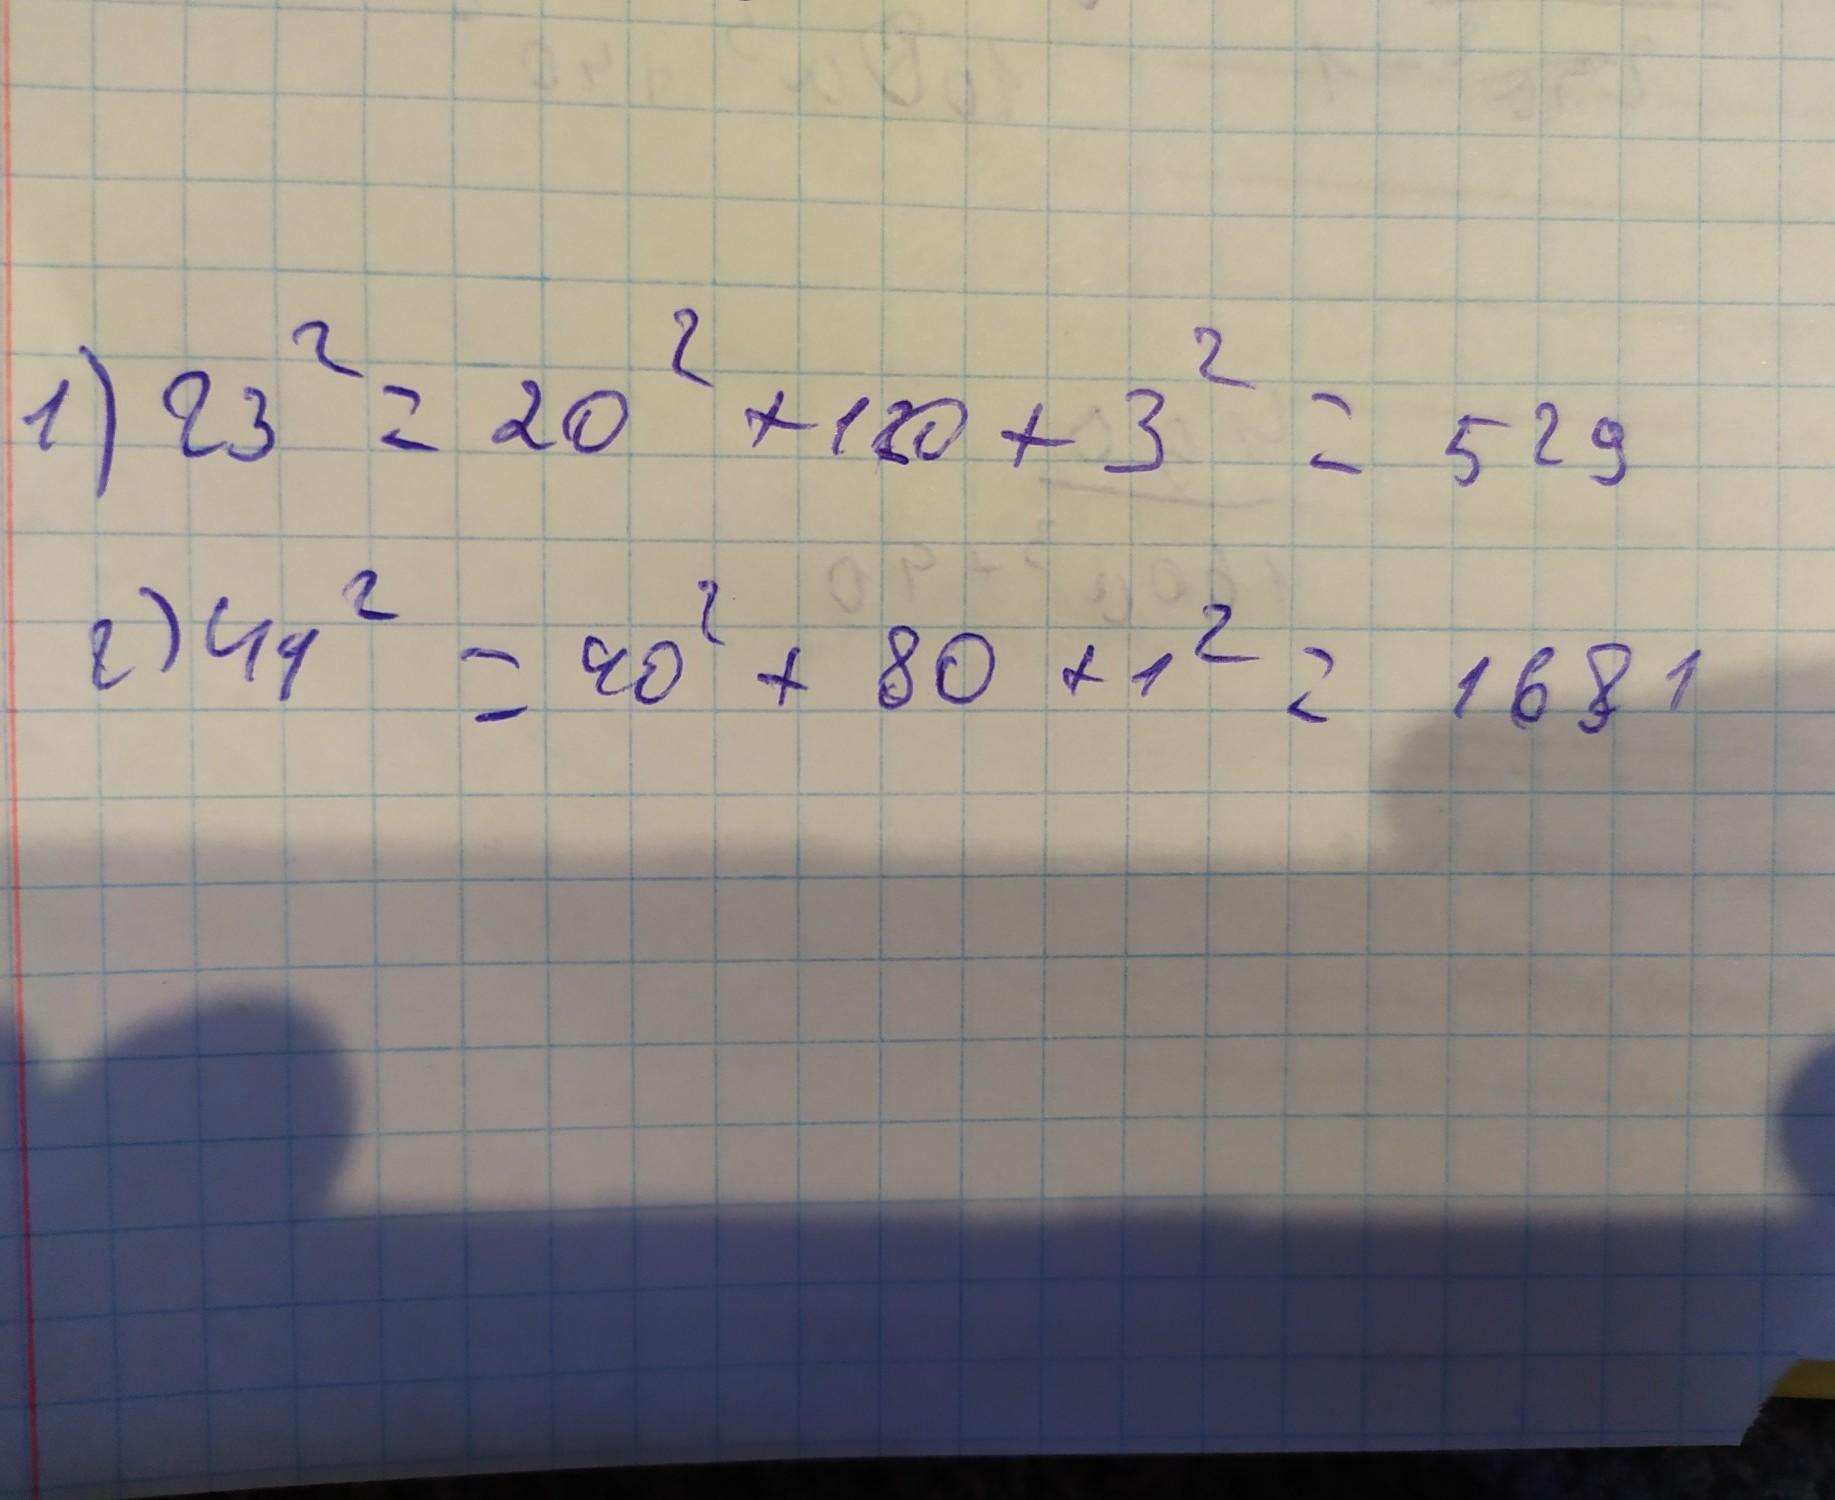 1) 23² = 20² + 120 + 3² = 529
2) 41² = 40² + 80 + 1² = 1681